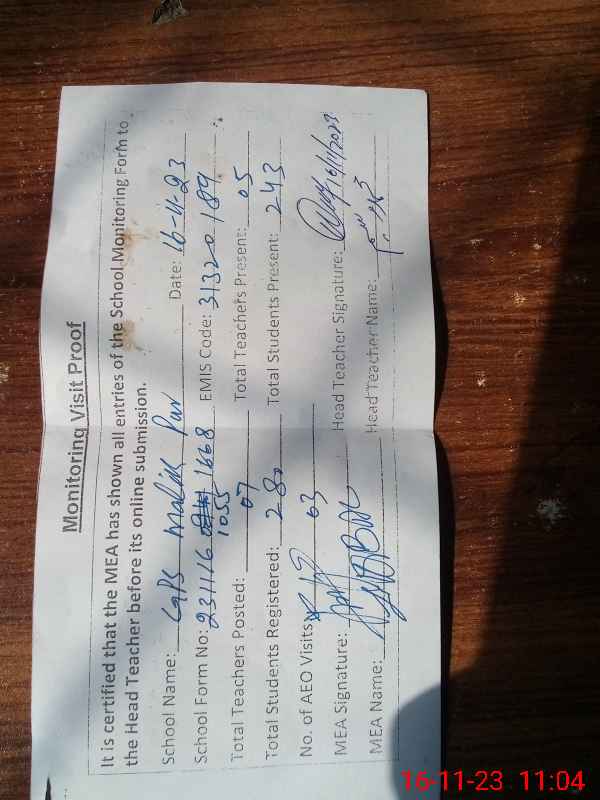 Monitoring Visit Proof
It is certified that the MEA has shown all entries of the School Monitoring Form to
the Head Teacher before its online submission.
School Name: GPS Malik Pur Date: 16-11-23
School Form No: 231116 1055 1668 EMIS Code: 31320189
Total Teachers Posted: 07 Total Teachers Present: 05
Total Students Registered: 280 Total Students Present: 243
No. of AEO Visits: 03
MEA Signature: Head Teacher Signature: 16/11/2023
MEA Name: Head Teacher Name:
16-11-23 11:04